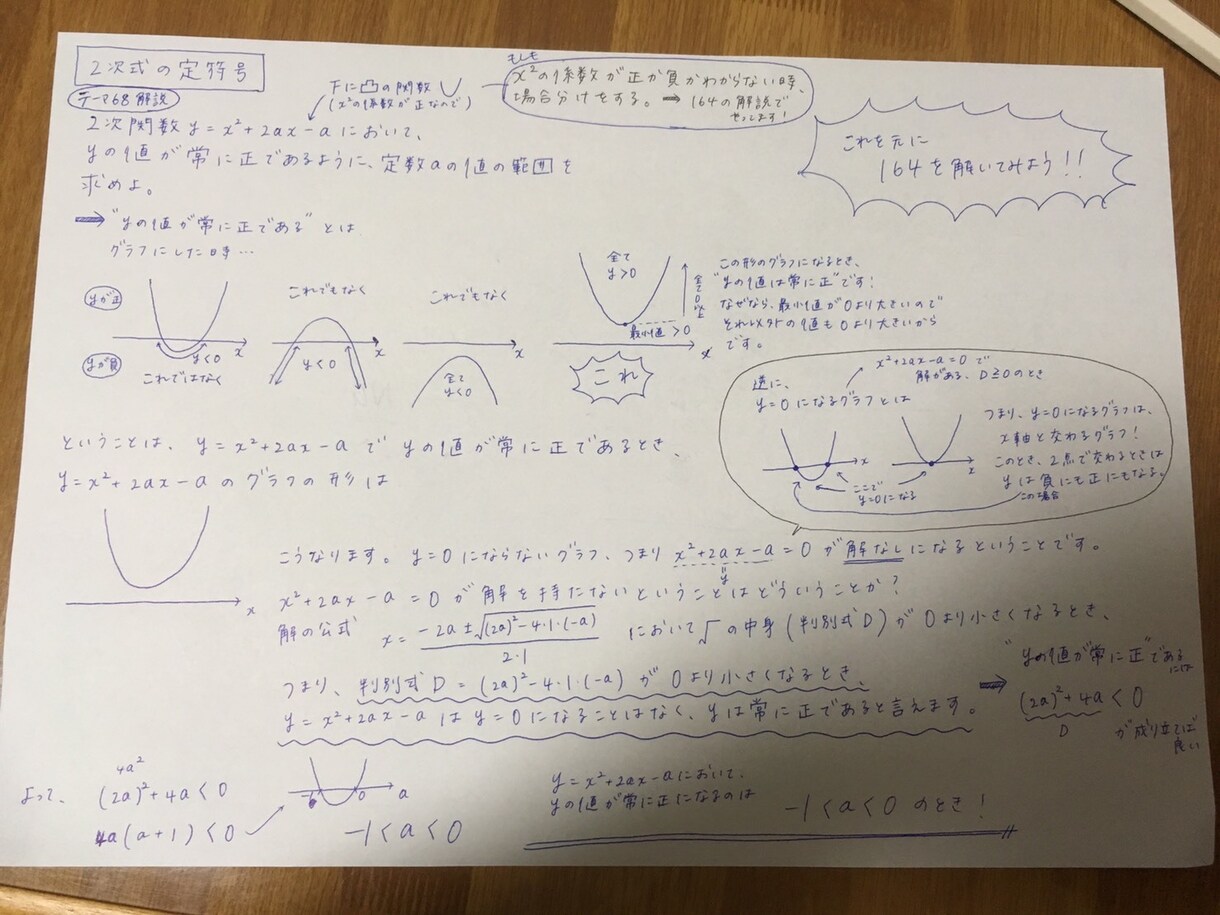 2次式の定符号
テーマ68解説
下に凸の関数
(x²の係数が正なので)
もしも
x²の係数が正か負かわからない時、
場合分けをする。➡ 164の解説で
2次関数 y=x²+2ax-a において、
yの値が常に正であるように、定数aの値の範囲を
求めよ。
これを元に
164を解いてみよう!!
➡ "yの値が常に正である"とは
グラフにした時…
yが正
yが負
y<0
x
これではなく
これでもなく
y<0
x
これでもなく
x
全て
y<0
全て
y>0
最小値>0
全て0以上
x
これ
この形のグラフになるとき、
"yの値は常に正"です!
なぜなら、最小値が0より大きいので
それ以外の値も0より大きいから
です。
x²+2ax-a=0で
解がある、D≧0のとき
逆に、
y=0になるグラフとは
x
x
ここで
y=0になる
つまり、y=0になるグラフは、
x軸と交わるグラフ!
このとき、2点で交わるときは
yは負にも正にもなる。
この場合
ということは、y=x²+2ax-aで yの値が常に正であるとき、
y=x²+2ax-aのグラフの形は
x
こうなります。y=0にならないグラフ、つまりx²+2ax-a=0が解なしになるということです。
y
x²+2ax-a=0が解を持たないということはどういうことか?
解の公式 x=(-2a±√(2a)²-4·1·(-a))/2·1 において√の中身(判別式D)が0より小さくなるとき、
つまり、判別式D=(2a)²-4·1·(-a)が0より小さくなるとき、
y=x²+2ax-aはy=0になることはなく、yは常に正であると言えます。
➡ "yの値が常に正"である
には
(2a)²+4a<0
D
が成り立てば
良い
4a²
よって、(2a)²+4a<0
4a(a+1)<0
0
a
-1<a<0
y=x²+2ax-aにおいて、
yの値が常に正になるのは
-1<a<0のとき!